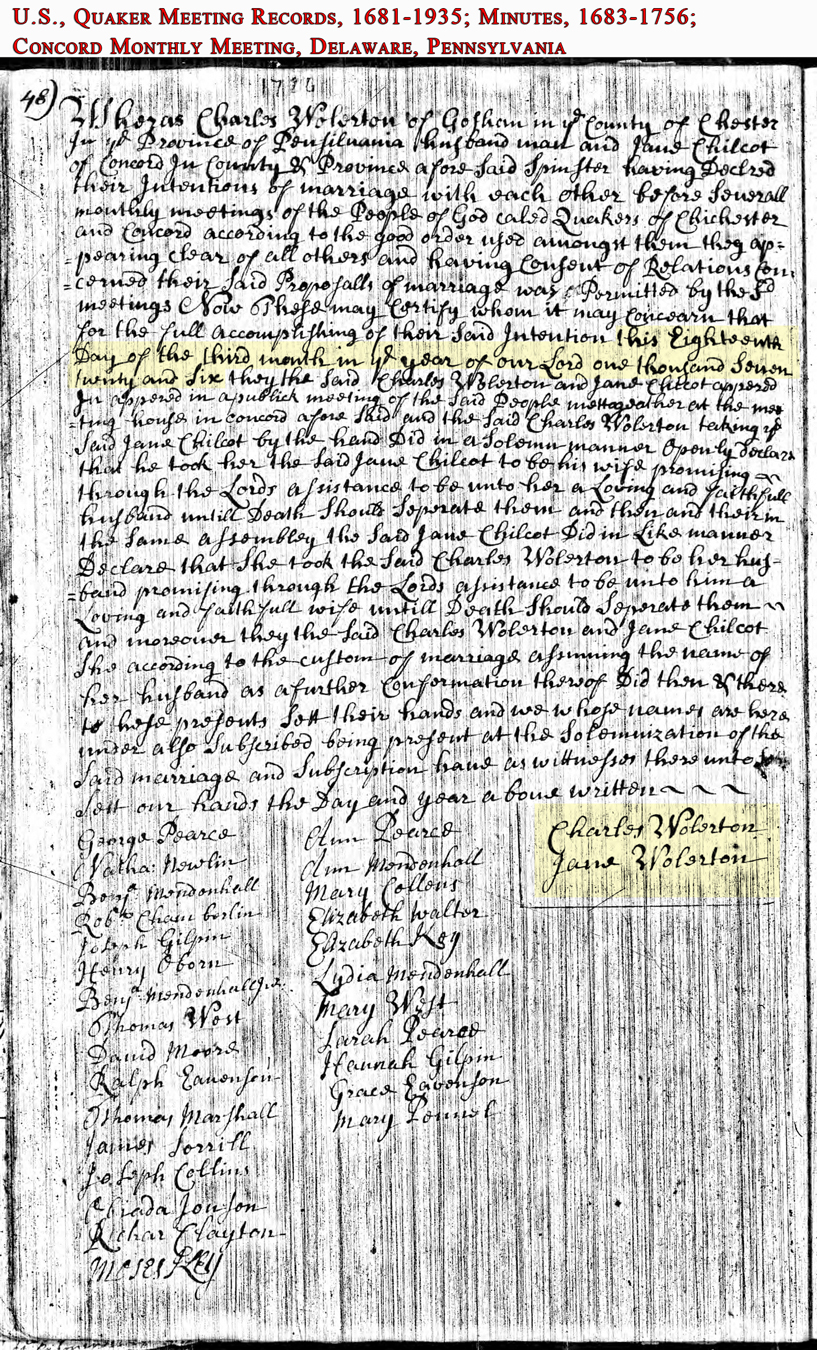 U.S., Quaker Meeting Records, 1681-1935; Minutes, 1683-1756;
Concord Monthly Meeting, Delaware, Pennsylvania
1726
48)
Wheras Charles Wolerton of Goshan in ye County of Chester
In ye Province of Pensilvania husband man and Jane Chilcot
of Concord In County & Province afore Said Spinster having Declred
their Intentions of marriage with each other before Severall
monthly meetings of the People of God caled Quakers of Chichester
and Concord according to the good order used amongst them they ap=
=pearing Clear of all others and having Consent of Relations Con=
=cerned their Said Proposalls of marriage was Permitted by the Sd
meetings Now These may Certify whom it may Concearn that
for the full accomplishing of their Said Intention this Eighteenth
Day of the third month in ye year of our Lord one thousand Seven
twenty and Six they the Said Charles Wolerton and Jane Chilcot appered
In appered in a publick meeting of the Said People mettogeather at the mee
=ting house in concord afore Said and the Said Charles Wolerton taking ye
Said Jane Chilcot by the hand Did in a Solemn manner Openly Declare
that he took her the Said Jane Chilcot to be his wife promising
through the Lords assistance to be unto her a Loving and faithfull
husband untill Death Should Seperate them and then and their in
the Same assembley the Said Jane Chilcot Did in Like manner
Declare that She took the Said Charles Wolerton to be her hus=
=band promising through the Lords assistance to be unto him a
Loving and faithfull wife untill Death Should Seperate them
and moreover they the Said Charles Wolerton and Jane Chilcot
She according to the custom of marriage assuming the name of
her husband as a further Conformation thereof Did then & there
to these presents Sett their hands and we whose names are here
under also Subscribed being present at the Solemnization of the
Said marriage and Subscription have as wittnesses there unto
Sett our hands the Day and year above written
Charles Wolerton
Jane Wolerton
George Pearce
Natha: Newlin
Benja Mendenhall
Robt Chamberlin
Joseph Gilpin
Henry Oborn
Benja Mendenhall Jr
Thomas West
David Moore
Ralph Eavenson
Thomas Marshall
James Sorrill
Joseph Collins
Jonson
Richar Clayton
Moses Key
Ann Pearce
Ann Mendenhall
Mary Collens
Elizabeth Walter
Elizabeth Key
Lydia Mendenhall
Mary West
Sarah Pearce
Hannah Gilpin
Grace Eavenson
Mary Pennel